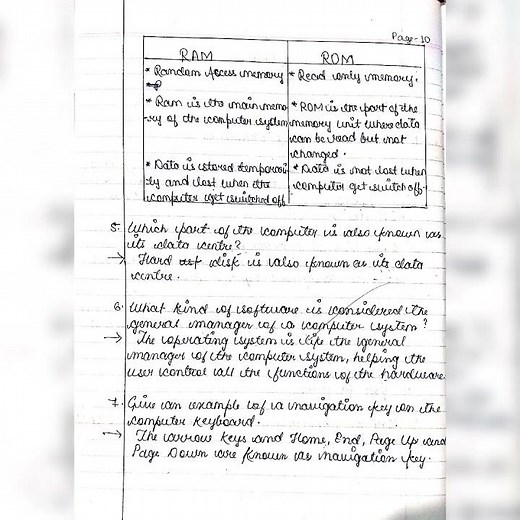 Page-10
RAM
ROM
* Random Access memory
* Ram is the main memo
-ry of the computer system
* Data is stored temporari
-ly and lost when the
computer get switched off
* Read only memory.
* ROM is the part of the
memory unit where data
can be read but not
changed.
* Data is not lost when
computer get switch off.
5. Which part of the computer is also known as
its data centre?
→ Hard disk is also known as its data
centre.
6. What kind of software is considered the
general manager of a computer system?
→ The operating system is like the general
manager of the computer system, helping the
user control all the functions of the hardware
7. Give an example of a navigation key on the
computer keyboard.
→ The arrow keys and Home, End, Page Up and
Page Down are known as navigation key.